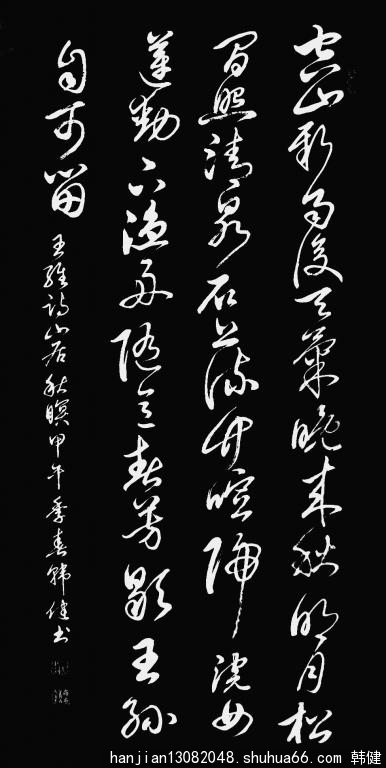 空山新雨後天氣晚來秋明月松
間照清泉石上流竹喧歸浣女
蓮動下漁舟隨意春芳歇王孫
自可留
王維詩山居秋暝甲午季春韓健書
hanjian13082048.shuhua66.com 韩健